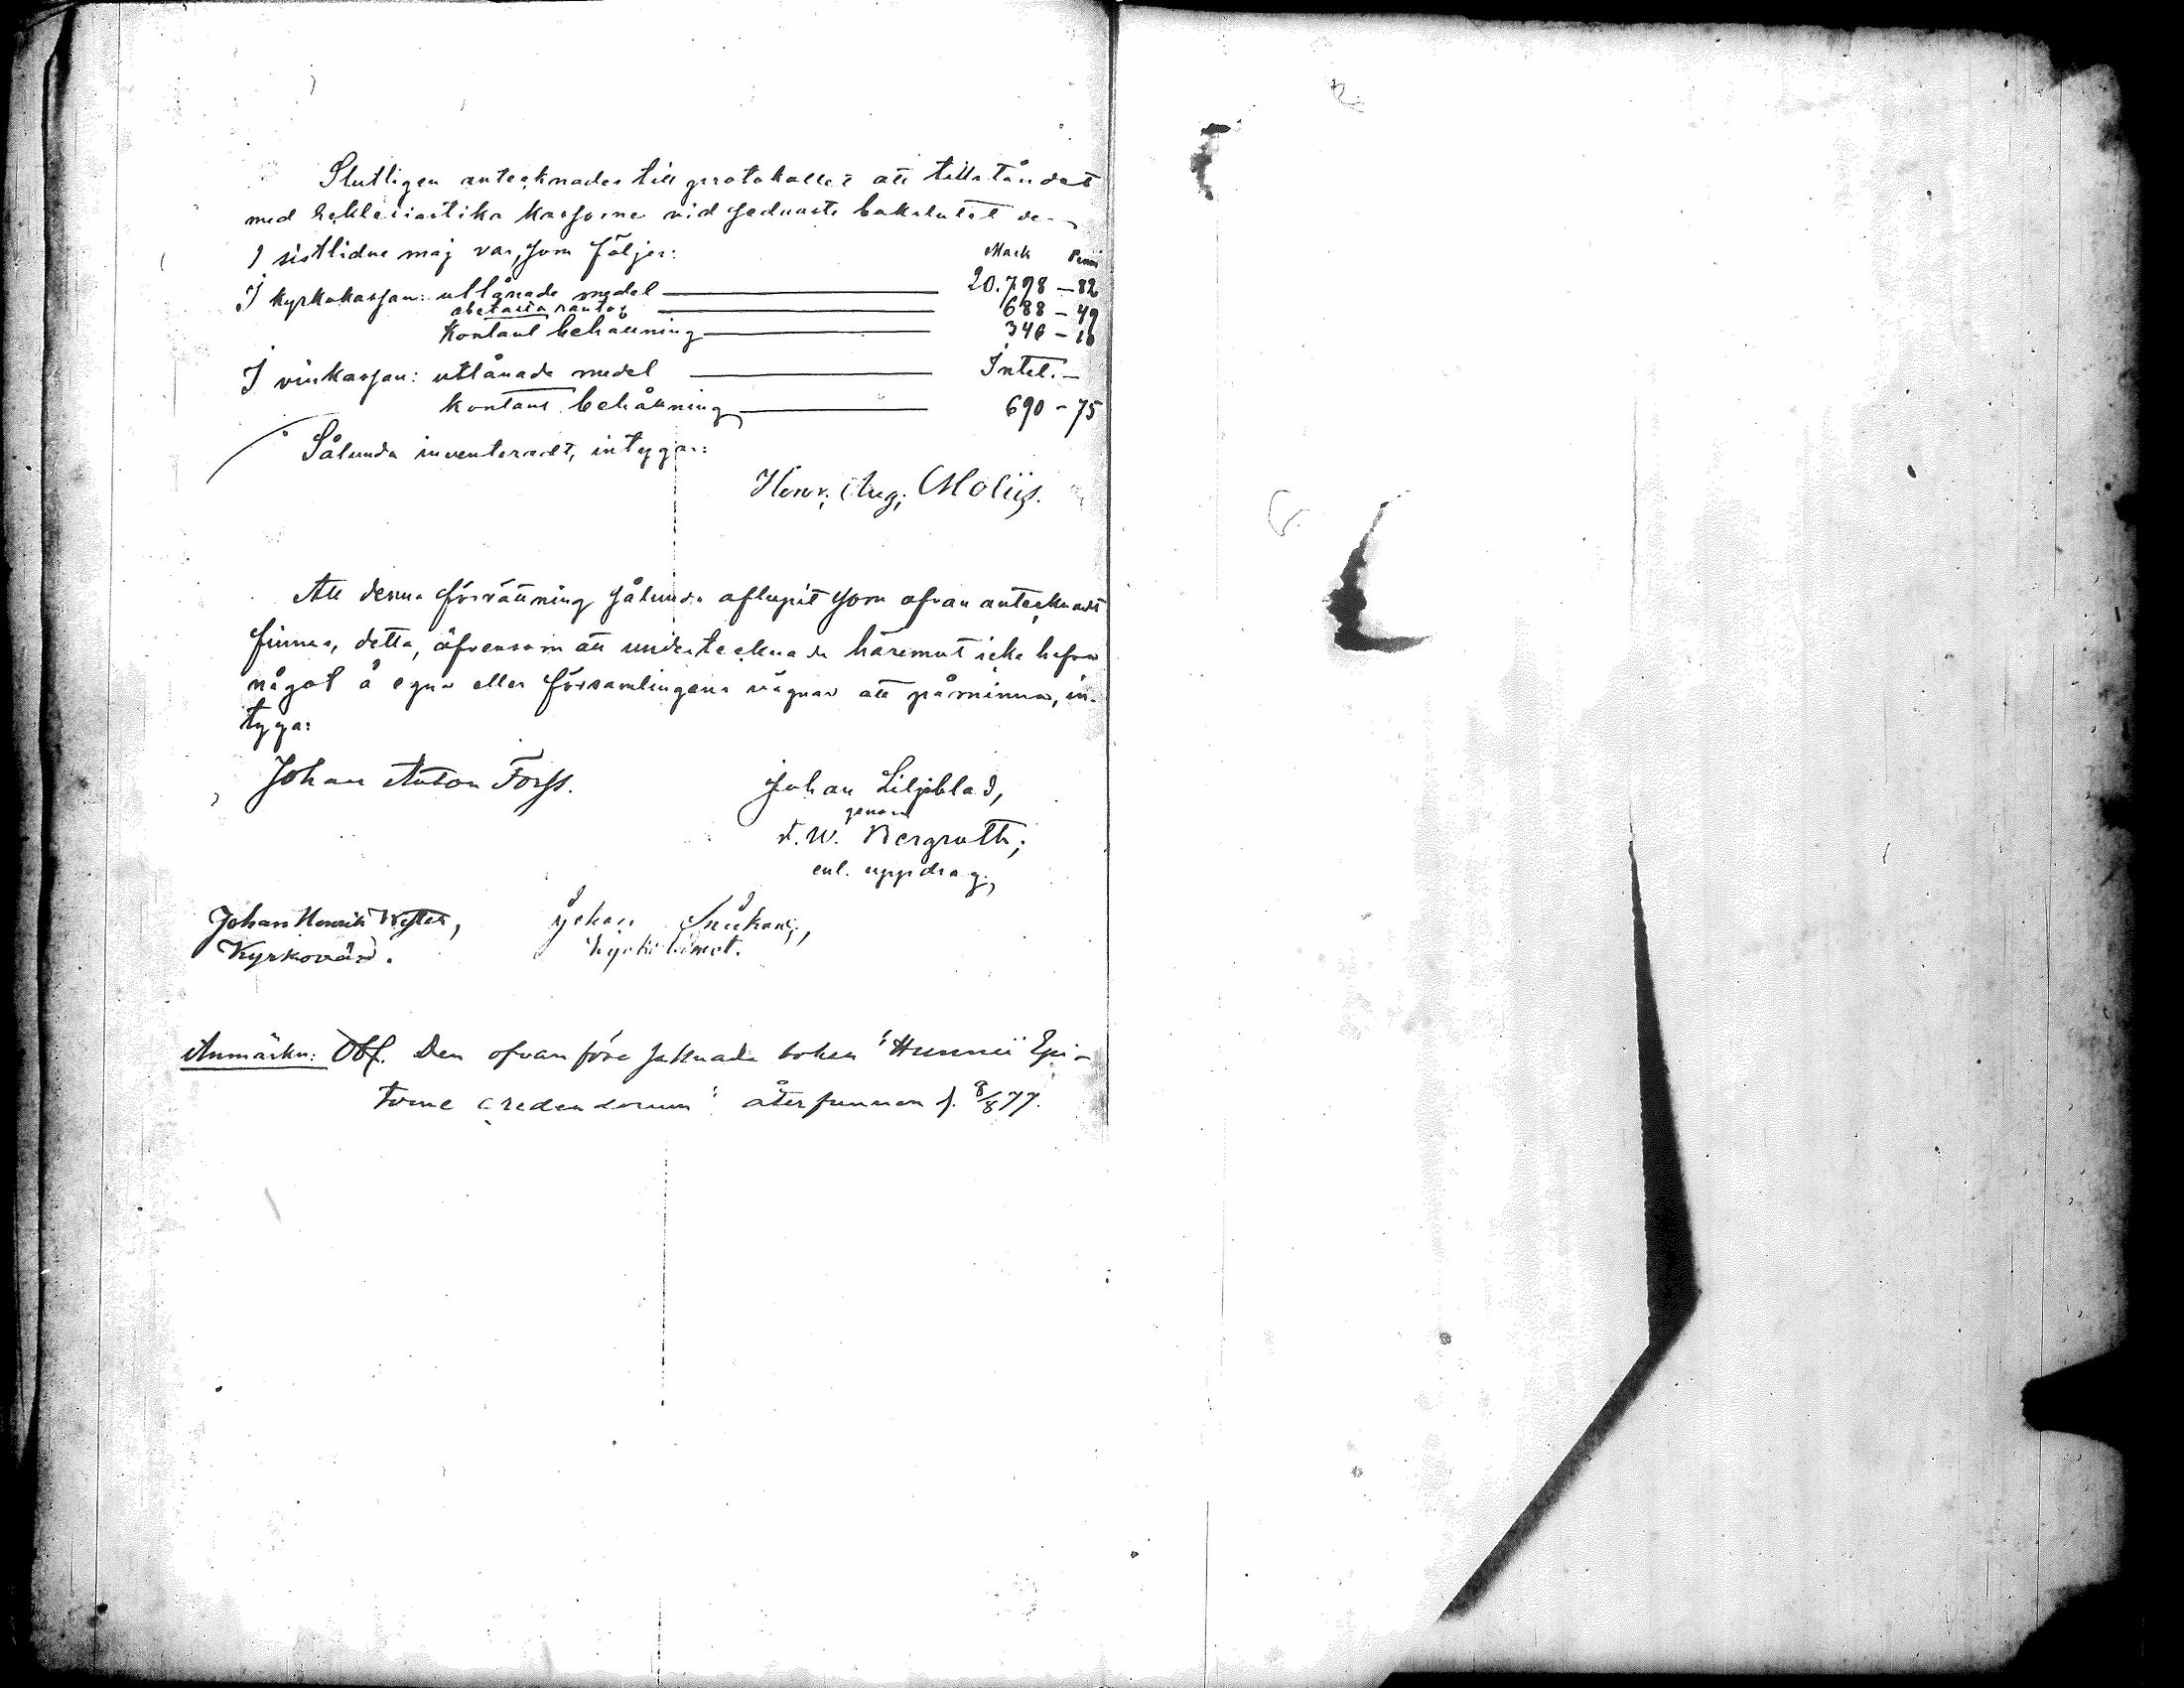 Slutligen antecknades till protokollet att tillståndet
med Ecklesiastika kassorne vid sednaste bokslutet den
1 sistlidne maj var, som följer:
Mark Penni
I kyrkokassan: utlånade medel — 20.798 — 82
obetalta räntor — 688 — 49
Kontant behållning — 346 — 16
I vinkassan: utlånade medel — Intet. —
kontant behållning — 690 — 75
Sålunda inventeradt, intygar:
Henr. Aug.
Att denna förrättning sålunda aflupit som ofvan antecknadt
finnes, detta, äfvensom att undertecknade häremot icke hafva
något å egna eller församlingens vägnar att påminna, in-
tyga:
Johan Anton Forss.
Johan Liljeblad,
genom
A. W. Bergroth;
enl. uppdrag.,
Johan Henrik
Kyrkovärd.
Johan
Anmärkn: Obs. Den ofvanföre saknade boken "Hunnii Epi-
tome credendorum" återfunnen d. 8/8 77.